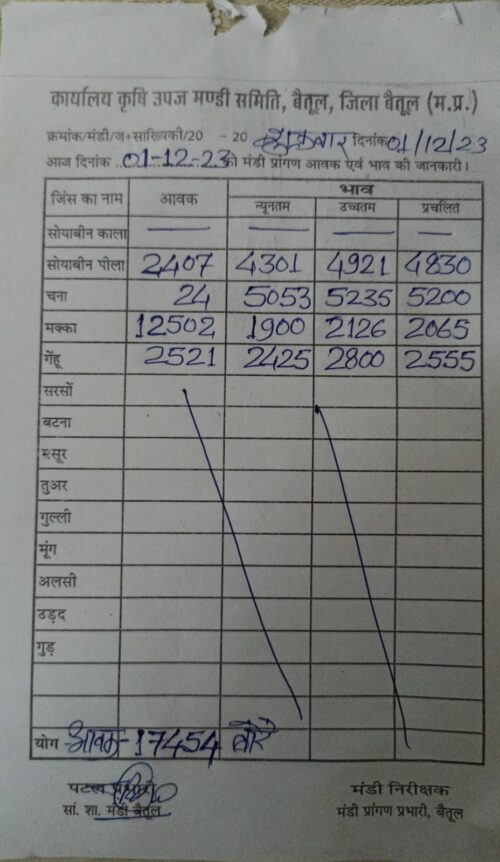 कार्यालय कृषि उपज मण्डी समिति, बैतूल, जिला बैतूल (म.प्र.)
क्रमांक/मंडी/ज+सांख्यिकी/20 - 20 शुक्रवार दिनांक 01/12/23
आज दिनांक ..01-12-23 को मंडी प्रांगण आवक एवं भाव की जानकारी।
जिंस का नाम आवक भाव
न्यूनतम उच्चतम प्रचलित
सोयाबीन काला — — —
सोयाबीन पीला 2407 4301 4921 4830
चना 24 5053 5235 5200
मक्का 12502 1900 2126 2065
गेंहू 2521 2425 2800 2555
सरसों
बटना
मसूर
तुअर
गुल्ली
मूंग
अलसी
उड़द
गुड़
योग आवक - 17454 बोरे
पटल प्रभारी मंडी निरीक्षक
सां. शा. मंडी बैतूल मंडी प्रांगण प्रभारी, बैतूल